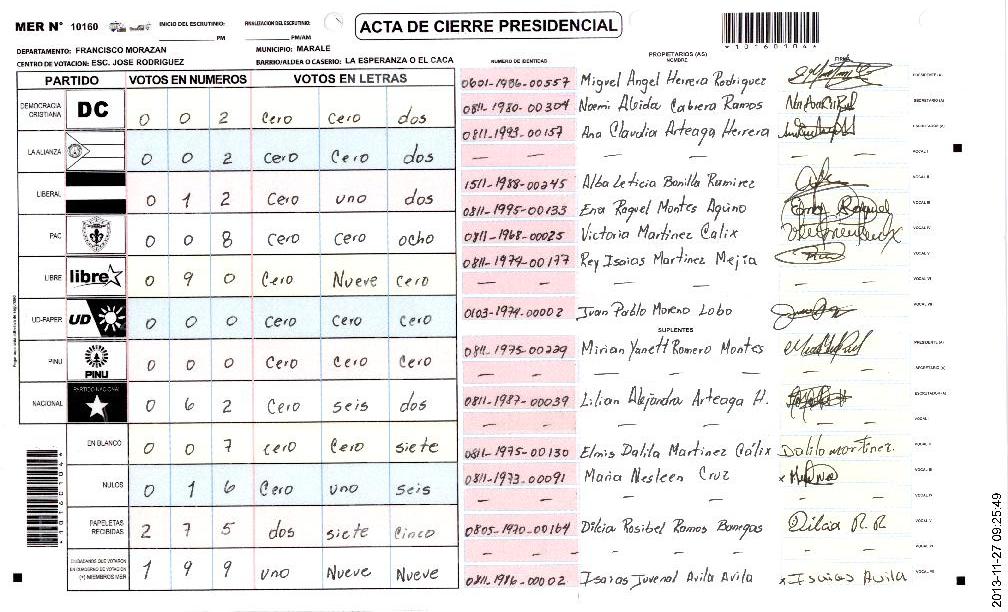 MER N° 10160 INICIO DEL ESCRUTINIO: PM FINALIZACION DEL ESCRUTINIO: PM/AM
ACTA DE CIERRE PRESIDENCIAL
DEPARTAMENTO: FRANCISCO MORAZAN MUNICIPIO: MARALE
CENTRO DE VOTACION: ESC. JOSE RODRIGUEZ BARRIO/ALDEA O CASERIO: LA ESPERANZA O EL CACA
PARTIDO VOTOS EN NUMEROS VOTOS EN LETRAS
DEMOCRACIA CRISTIANA DC 0 0 2 Cero Cero dos
LA ALIANZA 0 0 2 Cero Cero dos
LIBERAL 0 1 2 Cero uno dos
PAC 0 0 8 Cero Cero ocho
LIBRE libre 0 9 0 Cero Nueve Cero
UD-FAPER UD 0 0 0 Cero Cero Cero
PINU PINU 0 0 0 Cero Cero Cero
NACIONAL PARTIDO NACIONAL 0 6 2 Cero seis dos
EN BLANCO 0 0 7 cero Cero siete
NULOS 0 1 6 Cero uno seis
PAPELETAS RECIBIDAS 2 7 5 dos siete Cinco
CIUDADANOS QUE VOTARON EN CUADERNO DE VOTACION (+) MIEMBROS MER 1 9 9 uno Nueve Nueve
NUMERO DE IDENTIDAD PROPIETARIOS (AS) NOMBRE FIRMA
0601-1986-00557 Miguel Angel Herrera Rodriguez PRESIDENTE (A)
0811-1980-00304 Noemi Alvida Cabrera Ramos SECRETARIO (A)
0811-1993-00157 Ana Claudia Arteaga Herrera ESCRUTADOR (A)
— — — — — — VOCAL I
1511-1988-00245 Alba Leticia Bonilla Ramirez VOCAL II
0811-1995-00133 Ena Raquel Montes Aguino VOCAL III
0811-1968-00025 Victoria Martinez Calix VOCAL IV
0811-1974-00177 Rey Isaias Martinez Mejia VOCAL V
— — — — — — VOCAL VI
0103-1974-00002 Juan Pablo Moreno Lobo VOCAL VII
SUPLENTES
0811-1975-00229 Mirian Yanett Romero Montes PRESIDENTE (A)
— — — — — — SECRETARIO (A)
0811-1987-00039 Lilian Alejandra Arteaga H. ESCRUTADOR (A)
— — — — — — VOCAL I
0811-1975-00130 Elmis Dalila Martinez Cálix Dalila martinez. VOCAL II
0811-1973-00091 Maria Nesleen Cruz VOCAL III
— — — — — — VOCAL IV
0805-1970-00164 Dilcia Rosibel Ramos Banegas Dilcia R. R VOCAL V
— — — — — — VOCAL VI
0811-1986-00002 Isaias Juvenal Avila Avila x Isaias Avila VOCAL VII
2013-11-27 09:25:49